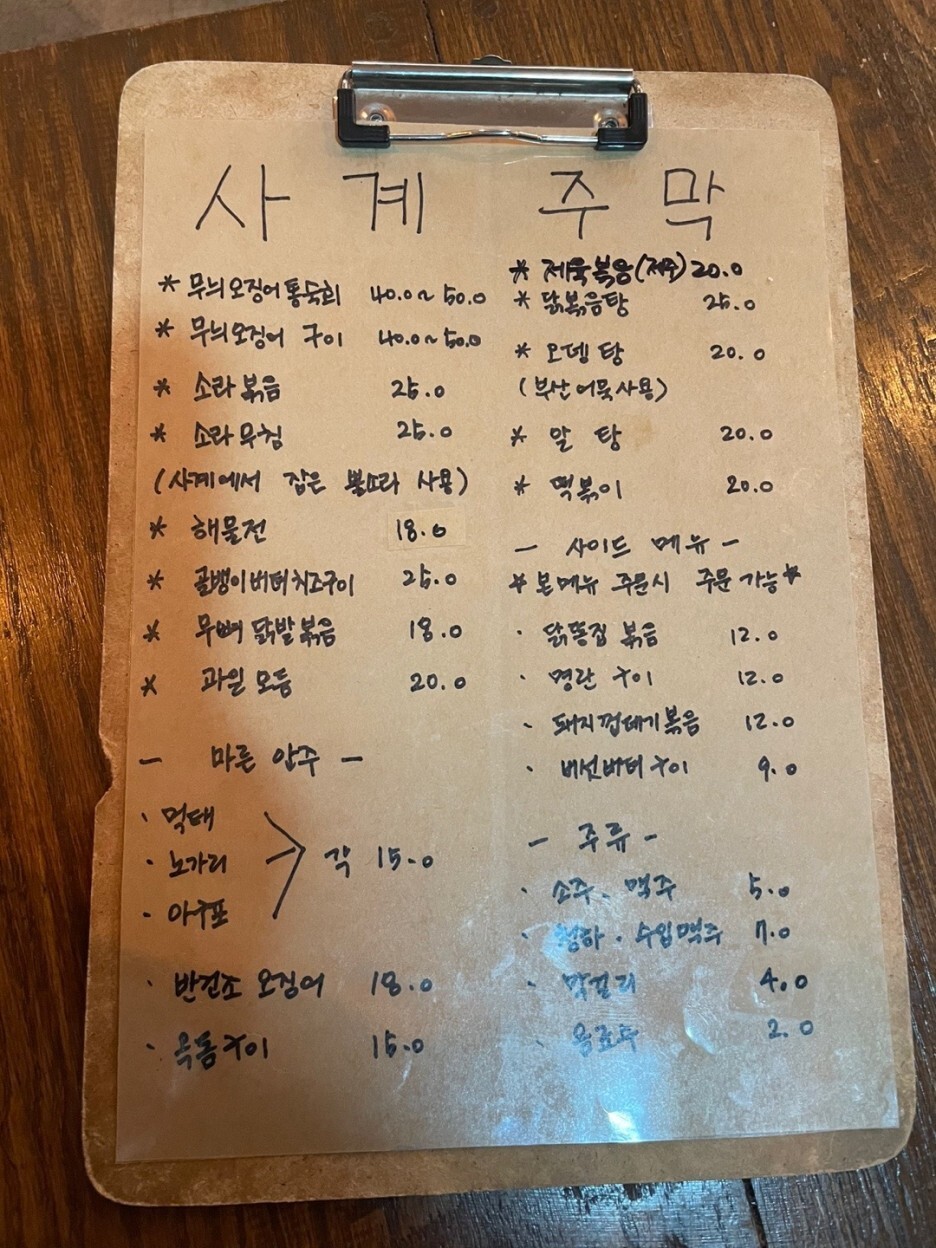 사계 주막
* 무늬오징어통숙회 40.0~50.0
* 무늬오징어 구이 40.0~50.0
* 소라볶음 25.0
* 소라무침 25.0
(사계에서 잡은 뿔소라 사용)
* 해물전 18.0
* 골뱅이버터치즈구이 25.0
* 무뼈 닭발볶음 18.0
* 과일모듬 20.0
- 마른 안주 -
· 먹태
· 노가리 각 15.0
· 아구포
· 반건조 오징어 18.0
· 옥돔구이 15.0
* 제육볶음(제주) 20.0
* 닭볶음탕 25.0
* 오뎅탕 20.0
(부산어묵사용)
* 알탕 20.0
* 떡볶이 20.0
- 사이드 메뉴 -
* 본메뉴 주문시 주문 가능 *
· 닭똥집 볶음 12.0
· 명란 구이 12.0
· 돼지껍데기볶음 12.0
· 버섯버터구이 9.0
- 주류 -
· 소주. 맥주 5.0
· 청하. 수입맥주 7.0
· 막걸리 4.0
· 음료수 2.0